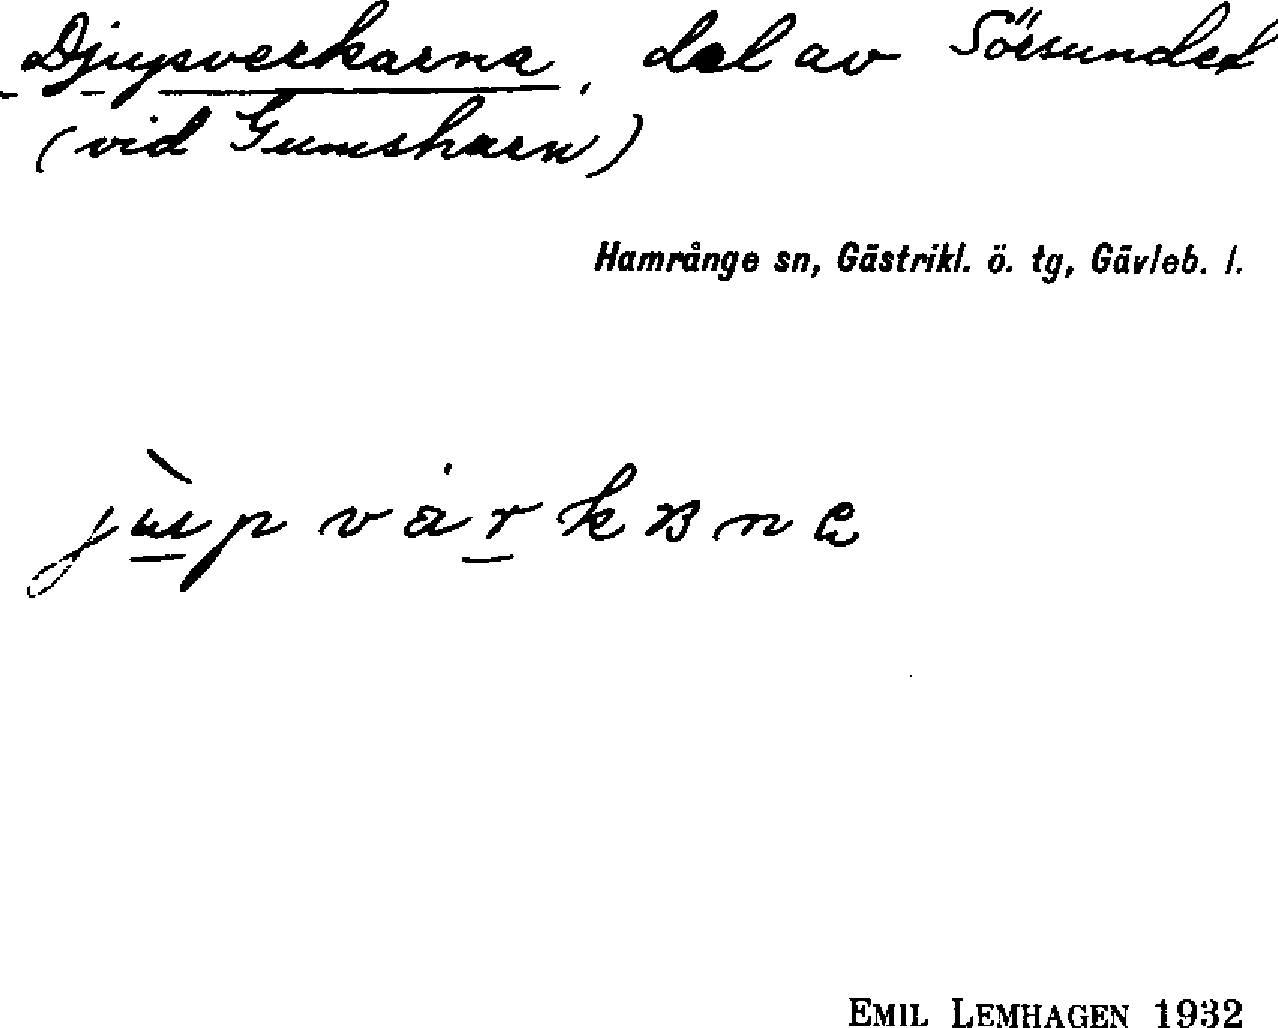 Djupverkarna, del av Sörsundet
(vid Gumsharn)
Hamrånge sn, Gästrikl. ö. tg, Gävleb. l.
EMIL LEMHAGEN 1932